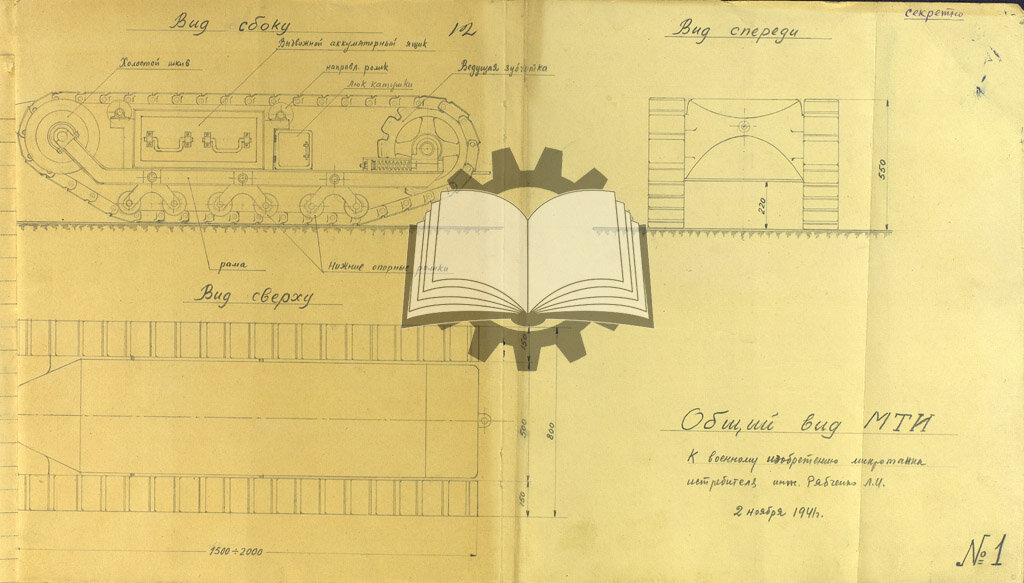 секретно
Вид сбоку
12
Вид спереди
Выдвижной аккумуляторный ящик
Холостой шкив
направл. ролик
Ведущая зубчатка
Люк катушки
550
220
рама
Нижние опорные ролики
Вид сверху
150
500
800
150
1500÷2000
Общий вид МТИ
К военному изобретению микротанка
истребителя инж. Рябченко Л.И.
2 ноября 1941г.
№1